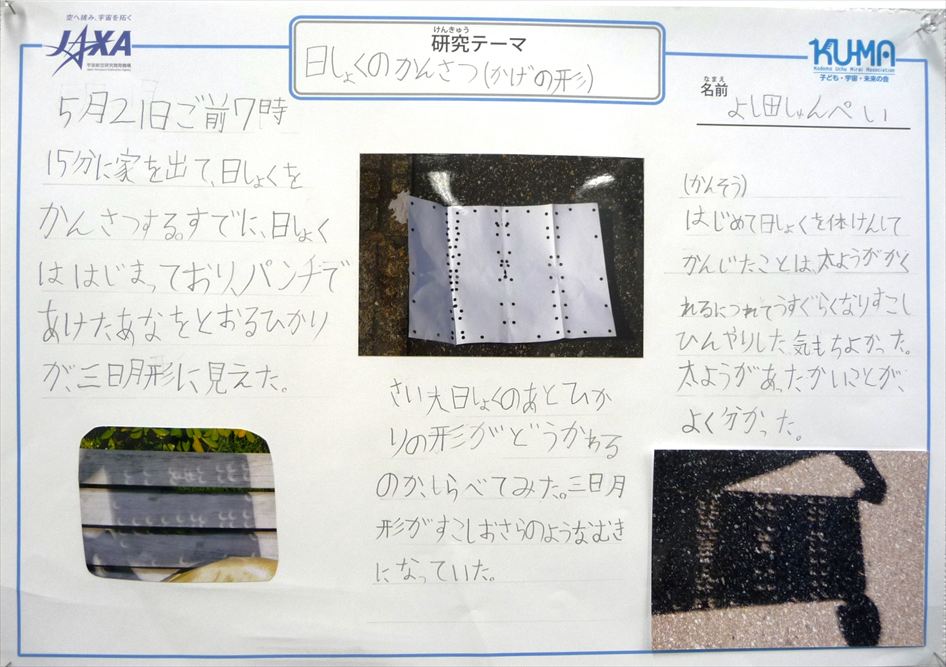 空へ挑み、宇宙を拓く
JAXA
宇宙航空研究開発機構
Japan Aerospace Exploration Agency
けんきゅう
研究テーマ
日しょくのかんさつ(かげの形)
KU-MA
Kodomo Uchu Mirai Association
子ども・宇宙・未来の会
なまえ
名前
よし田しゅんぺい
5月21日ご前7時
15分に家を出て、日しょくを
かんさつする。すでに、日しょく
ははじまっており、パンチで
あけたあなをとおるひかり
が、三日月形に見えた。
さい大日しょくのあとひか
りの形がどうかわる
のか、しらべてみた。三日月
形がすこしおさらのようなむき
になっていた。
(かんそう)
はじめて日しょくを体けんして
かんじたことは、太ようがかく
れるにつれてうすぐらくなりすこし
ひんやりした。気もちよかった。
太ようがあったかいことが、
よく分かった。